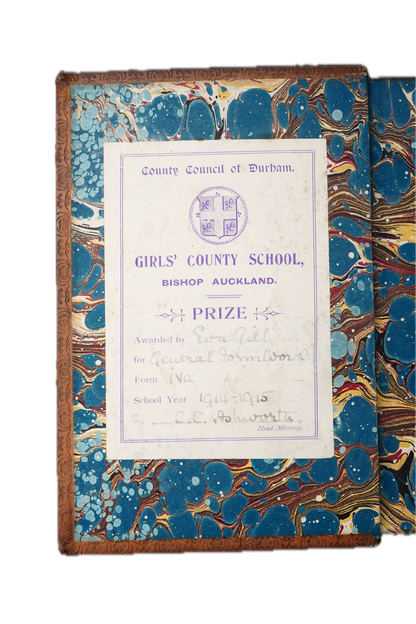 County Council of Durham.
GIRLS' COUNTY SCHOOL,
BISHOP AUCKLAND.
PRIZE
Awarded to Eva Gill
for General Form Work
Form IVa
School Year 1914-1915
C.C. Ashworth,
Head Mistress.